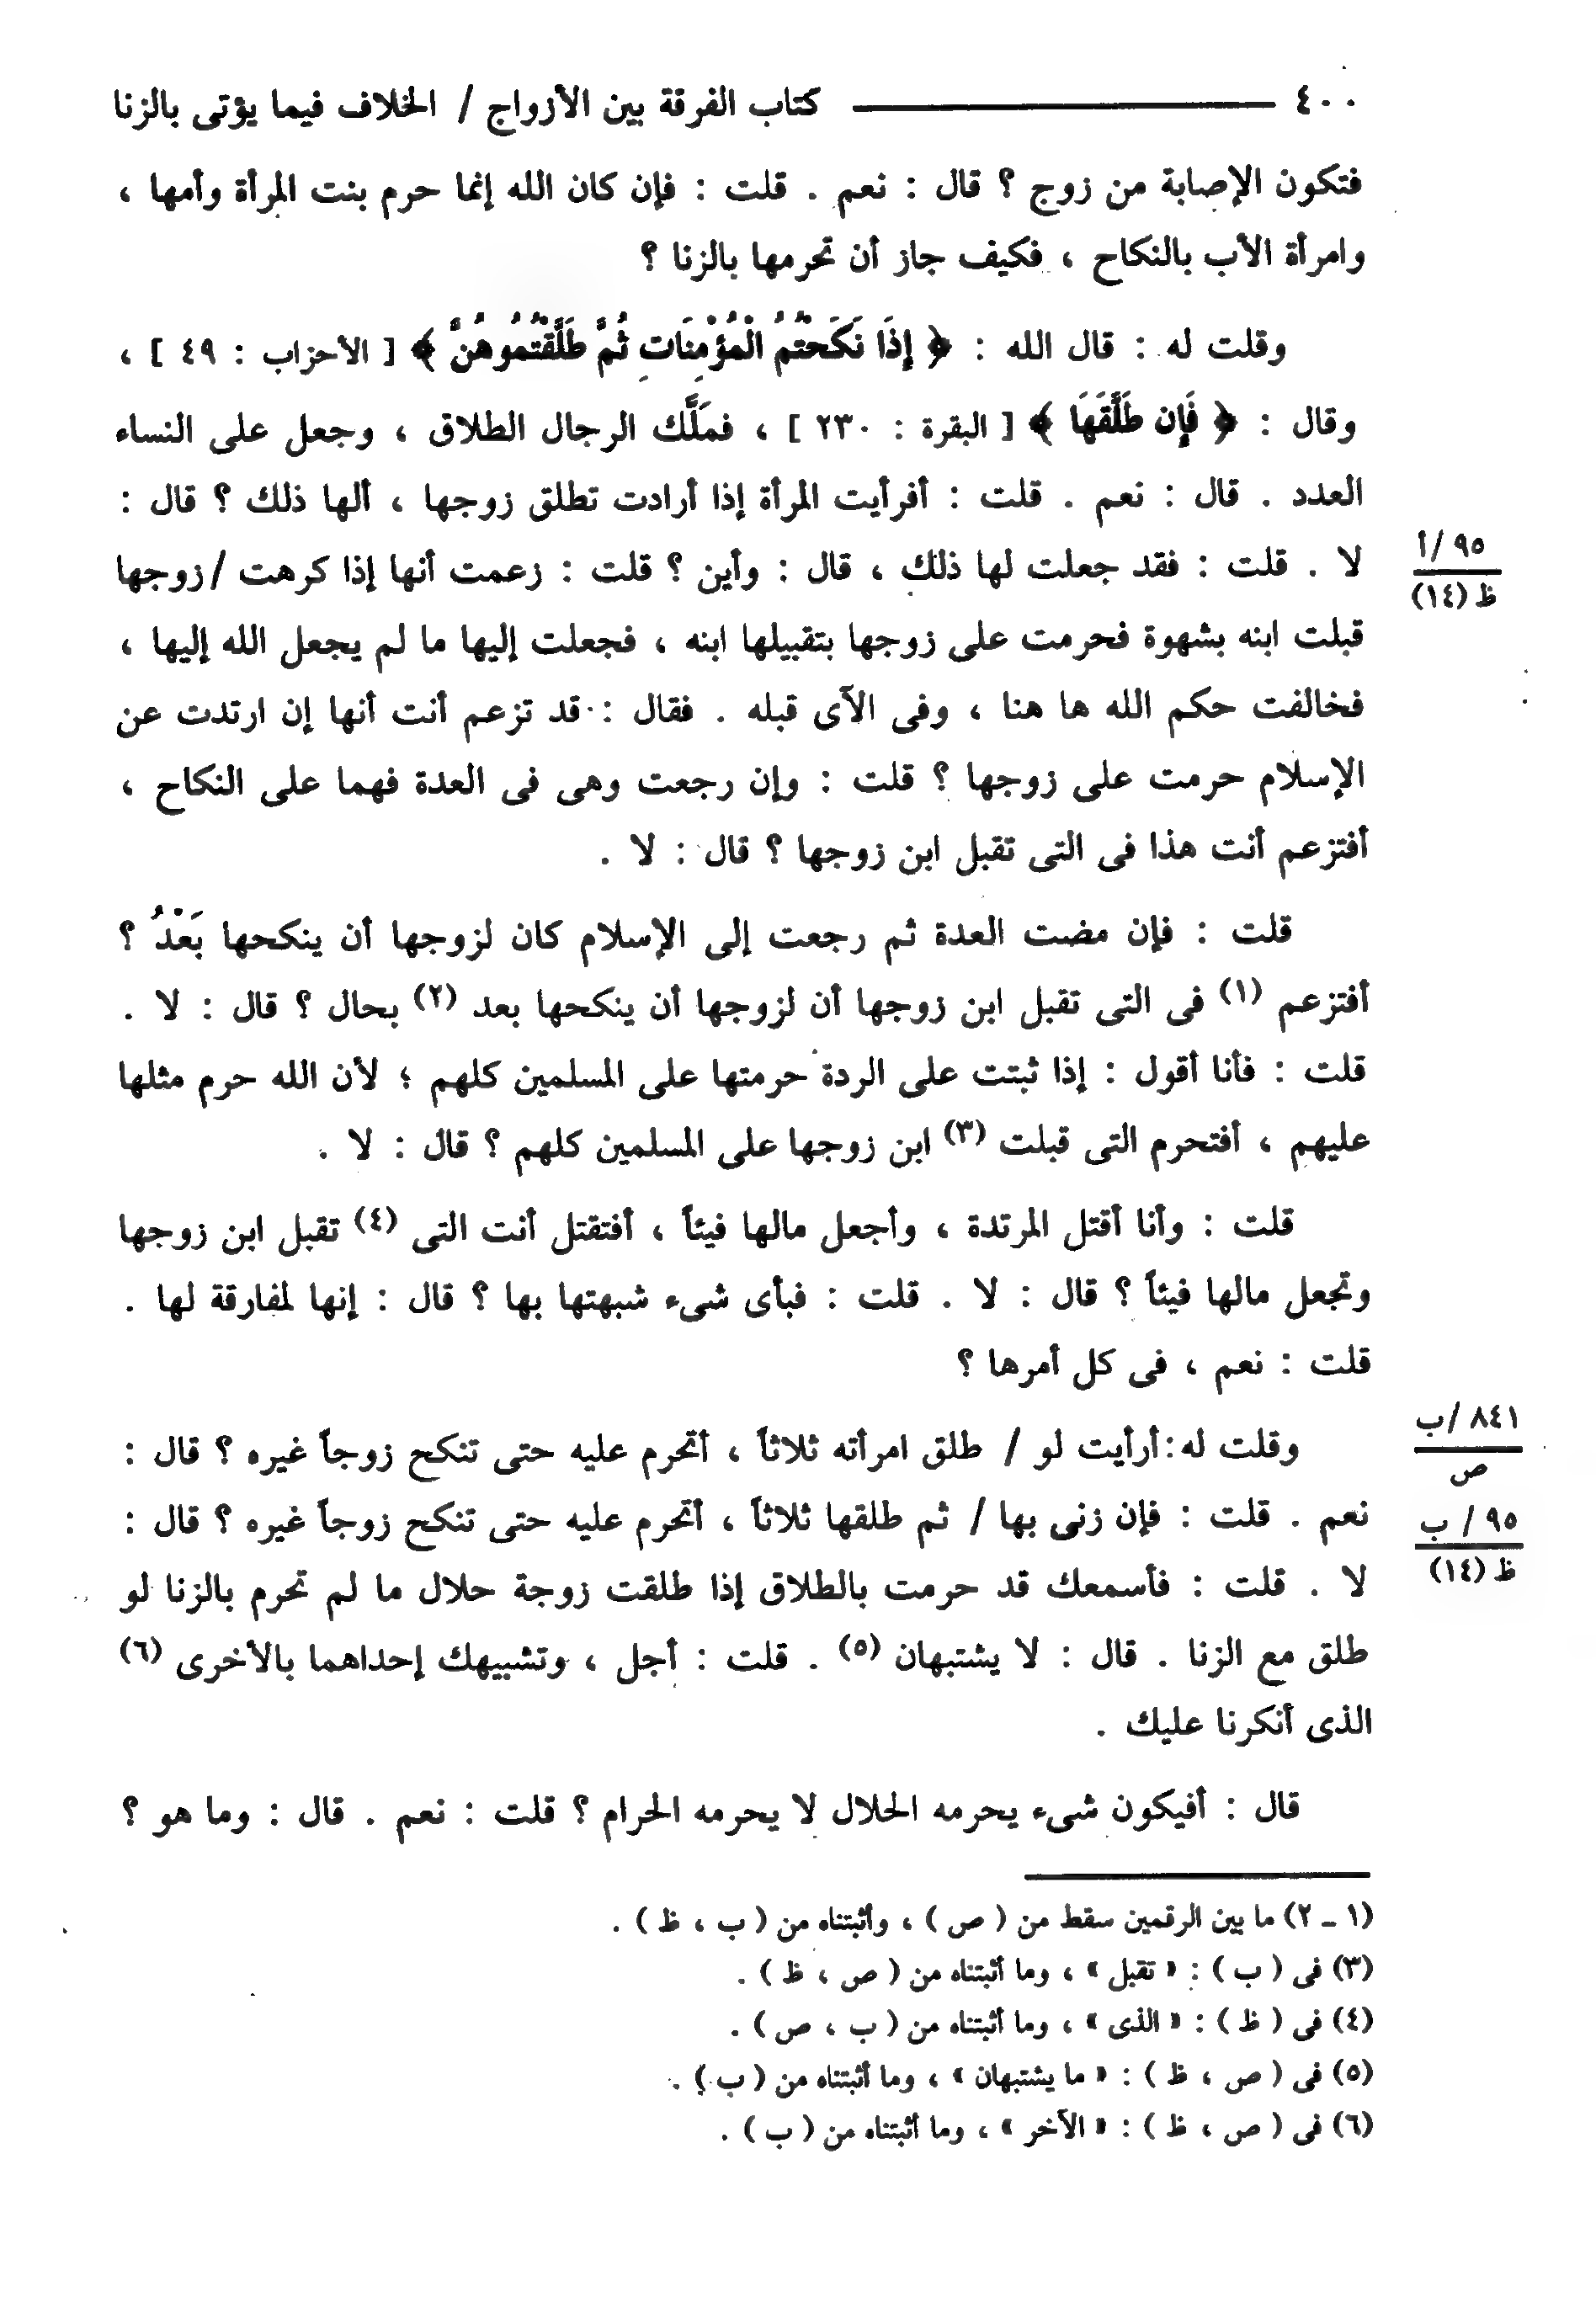 ٤٠٠ ــــــــــ كتاب الفرقة بين الأزواج / الخلاف فيما يؤتى بالزنا
فتكون الإصابة من زوج ؟ قال : نعم . قلت : فإن كان الله إنما حرم بنت المرأة وأمها ،
وامرأة الأب بالنكاح ، فكيف جاز أن تحرمها بالزنا ؟
وقلت له : قال الله : ﴿ إِذَا نَكَحْتُمُ الْمُؤْمِنَاتِ ثُمَّ طَلَّقْتُمُوهُنَّ ﴾ [ الأحزاب : ٤٩ ] ،
وقال : ﴿ فَإِن طَلَّقَهَا ﴾ [ البقرة : ٢٣٠ ] ، فملَّك الرجال الطلاق ، وجعل على النساء
العدد . قال : نعم . قلت : أفرأيت المرأة إذا أرادت تطلق زوجها ، ألها ذلك ؟ قال :
لا . قلت : فقد جعلت لها ذلك ، قال : وأين ؟ قلت : زعمت أنها إذا كرهت / زوجها
٩٥ /أ
ظ (١٤)
قبلت ابنه بشهوة فحرمت على زوجها بتقبيلها ابنه ، فجعلت إليها ما لم يجعل الله إليها ،
فخالفت حكم الله ها هنا ، وفى الآى قبله . فقال : قد تزعم أنت أنها إن ارتدت عن
الإسلام حرمت على زوجها ؟ قلت : وإن رجعت وهى فى العدة فهما على النكاح ،
أفتزعم أنت هذا فى التى تقبل ابن زوجها ؟ قال : لا .
قلت : فإن مضت العدة ثم رجعت إلى الإسلام كان لزوجها أن ينكحها بَعْدُ ؟
أفتزعم (١) فى التى تقبل ابن زوجها أن لزوجها أن ينكحها بعد (٢) بحال ؟ قال : لا .
قلت : فأنا أقول : إذا ثبتت على الردة حرمتها على المسلمين كلهم ؛ لأن الله حرم مثلها
عليهم ، أفتحرم التى قبلت (٣) ابن زوجها على المسلمين كلهم ؟ قال : لا .
قلت : وأنا أقتل المرتدة ، وأجعل مالها فيئاً ، أفتقتل أنت التى (٤) تقبل ابن زوجها
وتجعل مالها فيئاً ؟ قال : لا . قلت : فبأى شىء شبهتها بها ؟ قال : إنها لمفارقة لها .
قلت : نعم ، فى كل أمرها ؟
وقلت له : أرأيت لو / طلق امرأته ثلاثاً ، أتحرم عليه حتى تنكح زوجاً غيره ؟ قال :
٨٤١ /ب
ص
نعم . قلت : فإن زنى بها / ثم طلقها ثلاثاً ، أتحرم عليه حتى تنكح زوجاً غيره ؟ قال :
٩٥ / ب
ظ (١٤)
لا . قلت : فأسمعك قد حرمت بالطلاق إذا طلقت زوجة حلال ما لم تحرم بالزنا لو
طلق مع الزنا . قال : لا يشتبهان (٥) . قلت : أجل ، وتشبيهك إحداهما بالأخرى (٦)
الذى أنكرنا عليك .
قال : أفيكون شىء يحرمه الحلال لا يحرمه الحرام ؟ قلت : نعم . قال : وما هو ؟
(١ ـ ٢) ما بين الرقمين سقط من ( ص ) ، وأثبتناه من ( ب ، ظ ) .
(٣) فى ( ب ) : « تقبل » ، وما أثبتناه من ( ص ، ظ ) .
(٤) فى ( ظ ) : « الذى » ، وما أثبتناه من ( ب ، ص ) .
(٥) فى ( ص ، ظ ) : « ما يشتبهان » ، وما أثبتناه من ( ب ) .
(٦) فى ( ص ، ظ ) : « الآخر » ، وما أثبتناه من ( ب ) .